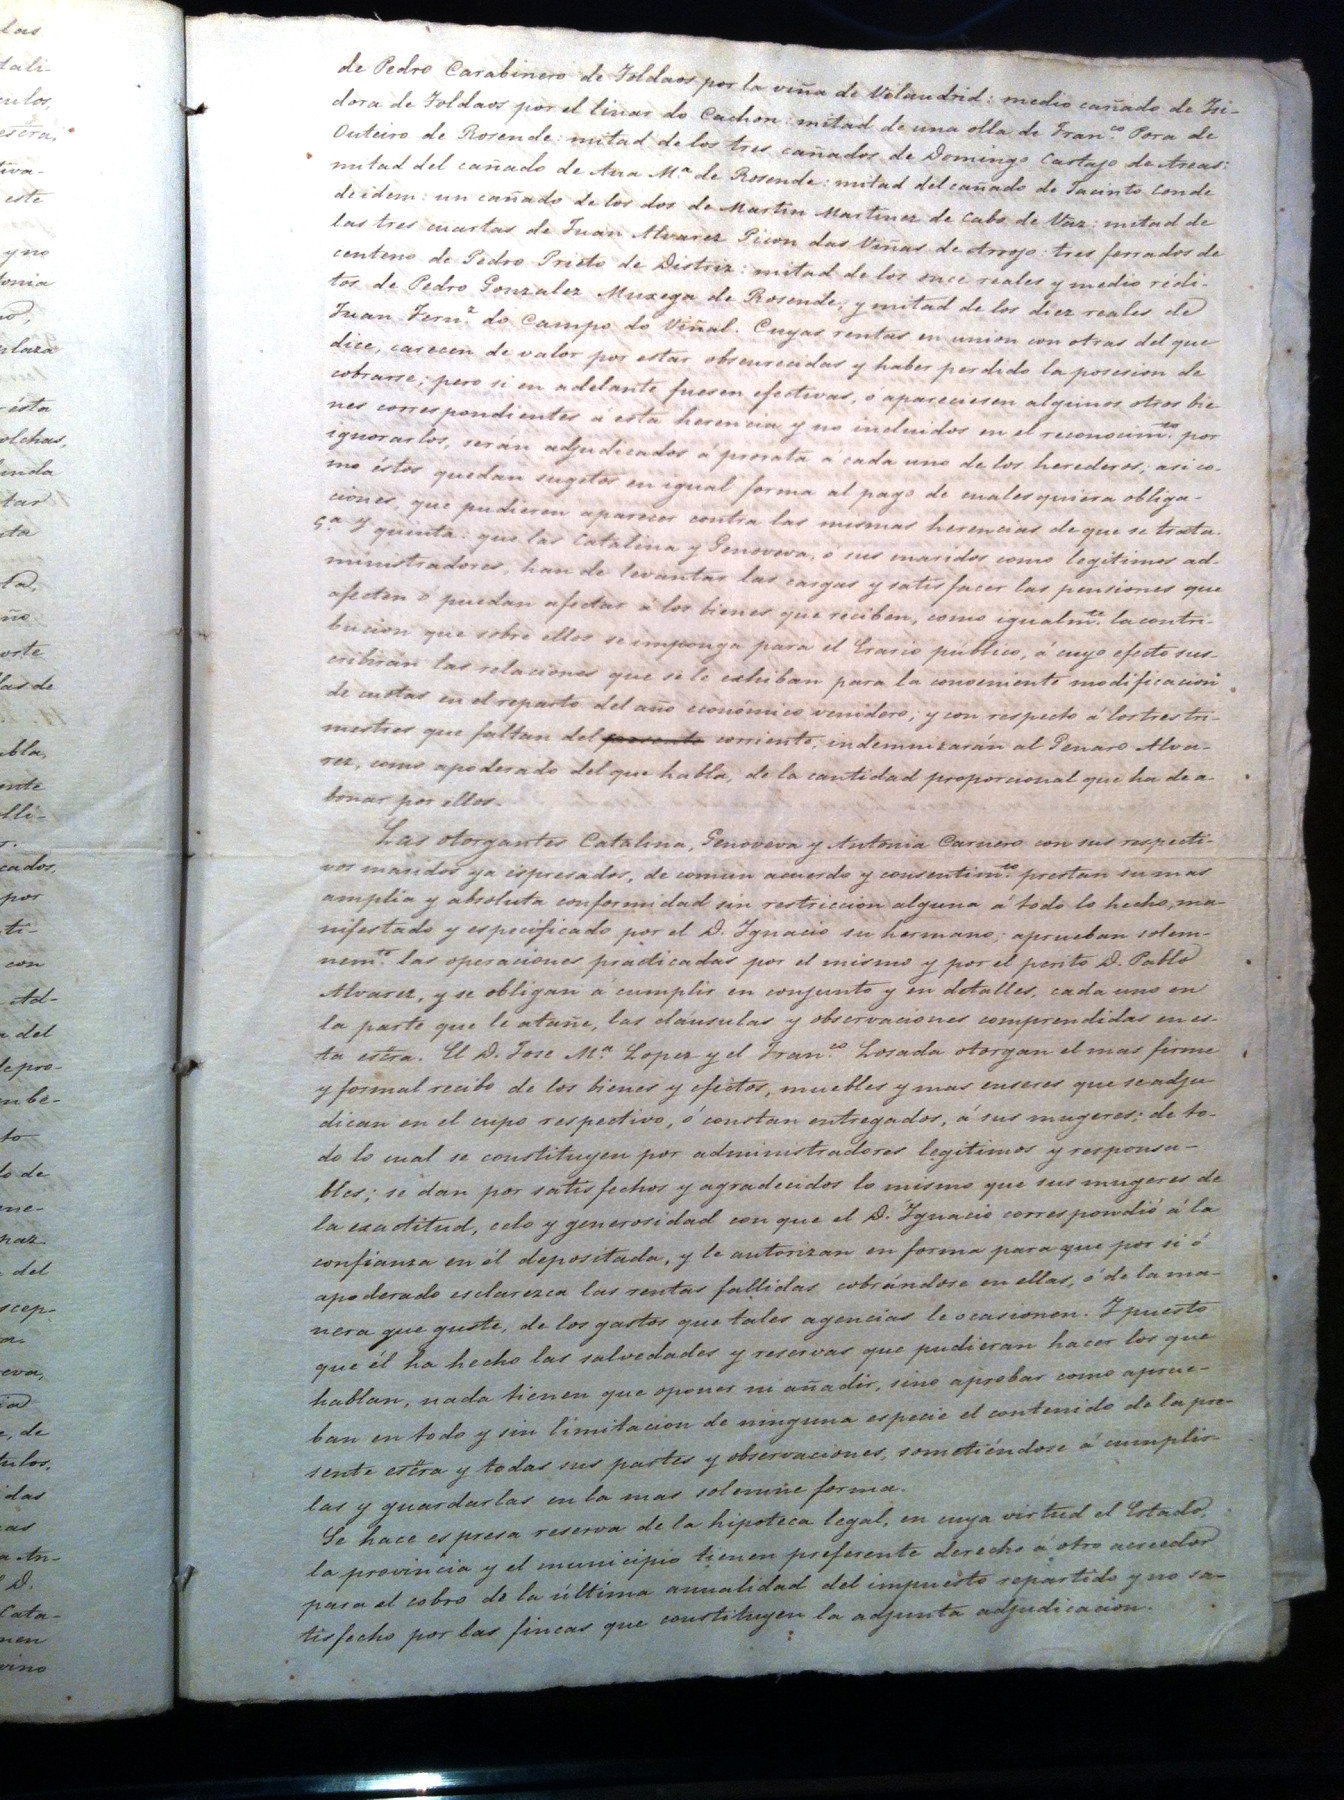 las
tali-
culos,
escra,
tiva-
este
y no
tonia
plaza
ésta
olchas,
linda
tar
sta
ta,
orte
las de
abla,
ente
lli-
cados,
por
ti-
con
Ad-
a del
depro-
mbe-
to
lo de
me-
naz
del
scep-
eva,
e, de
tulos,
idas
cas
a An-
D.
Cata-
nen
vino
de Pedro Carabinero de Toldaos por la viña de Vilaudrid: medio cañado de Isi-
dora de Toldaos por el linar do Cachon: mitad de una olla de Fran.co Pora de
Outeiro de Rosende: mitad de los tres cañados de Domingo Castajo de Areas:
mitad del cañado de Ana M.a de Rosende: mitad del cañado de Jacinto Conde
de idem: un cañado de los dos de Martin Martinez de Cabo de Vaz: mitad de
las tres cuartas de Juan Alvarez Picon das Viñas de Arrojo: tres ferrados de
centeno de Pedro Prieto de Distriz: mitad de los once reales y medio rédi-
tos de Pedro Gonzalez Muxega de Rosende; y mitad de los diez reales de
Juan Fern.z do Campo do Viñal. Cuyas rentas en union con otras del que
dice, carecen de valor por estar obscurecidas y haber perdido la posesion de
cobrarse; pero si en adelante fuesen efectivas, ó apareciesen algunos otros bie
nes correspondientes á esta herencia y no incluidos en el reconocim.to por
ignorarlos, serán adjudicados á prorata a cada uno de los herederos; asi co-
mo éstos quedan sugetos en igual forma al pago de cualesquiera obliga-
ciones, que pudieren aparecer contra las mismas herencias de que se trata.
5.a Y quinta: que las Catalina y Genoveva, ó sus maridos como legítimos ad-
ministradores, han de levantar las cargas y satisfacer las pensiones que
afecten ó puedan afectar á los bienes que reciben, como igualm.te la contri-
bucion que sobre ellos se imponga para el Erario público, á cuyo efecto sus-
cribirán las relaciones que se le exhiban para la conveniente modificacion
de cuotas en el reparto del año económico venidero; y con respecto á los tres tri-
mestres que faltan del corriente, indemnizarán al Genaro Alva-
rez, como apoderado del que habla, de la cantidad proporcional que ha de a-
bonar por ellos.
Las otorgantes Catalina, Genoveva y Antonia Carnero con sus respecti-
vos maridos ya espresados, de comun acuerdo y consentim.to prestan su mas
amplia y absoluta conformidad sin restriccion alguna á todo lo hecho, ma-
nifestado y especificado por el D. Ygnacio su hermano; aprueban solem-
nem.te las operaciones practicadas por el mismo y por el perito D. Pablo
Alvarez, y se obligan á cumplir en conjunto y en detalles, cada uno en
la parte que le atañe, las cláusulas y observaciones comprendidas en es-
ta escra. El D. Jose M.a Lopez y el Fran.co Losada otorgan el mas firme
y formal recibo de los bienes y efectos, muebles y mas enseres que se adju-
dican en el cupo respectivo, ó constan entregados, á sus mugeres; de to-
do lo cual se constituyen por administradores legitimos y responsa-
bles; se dan por satisfechos y agradecidos lo mismo que sus mugeres de
la exactitud, celo y generosidad con que el D. Ygnacio correspondió á la
confianza en él depositada, y le autorizan en forma para que por si ó
apoderado esclarezca las rentas fallidas cobrándose en ellas, ó de la ma-
nera que guste, de los gastos que tales agencias le ocasionen. Y puesto
que él ha hecho las salvedades y reservas que pudieran hacer los que
hablan, nada tienen que oponer ni añadir, sino aprobar como aprue-
ban en todo y sin limitacion de ninguna especie el contenido de la pre-
sente escra y todas sus partes y observaciones, sometiéndose á cumplir-
las y guardarlas en la mas solemne forma.
Se hace espresa reserva de la hipoteca legal, en cuya virtud el Estado,
la provincia y el municipio tienen preferente derecho á otro acreedor
para el cobro de la última anualidad del impuesto repartido y no sa-
tisfecho por las fincas que constituyen la adjunta adjudicacion.